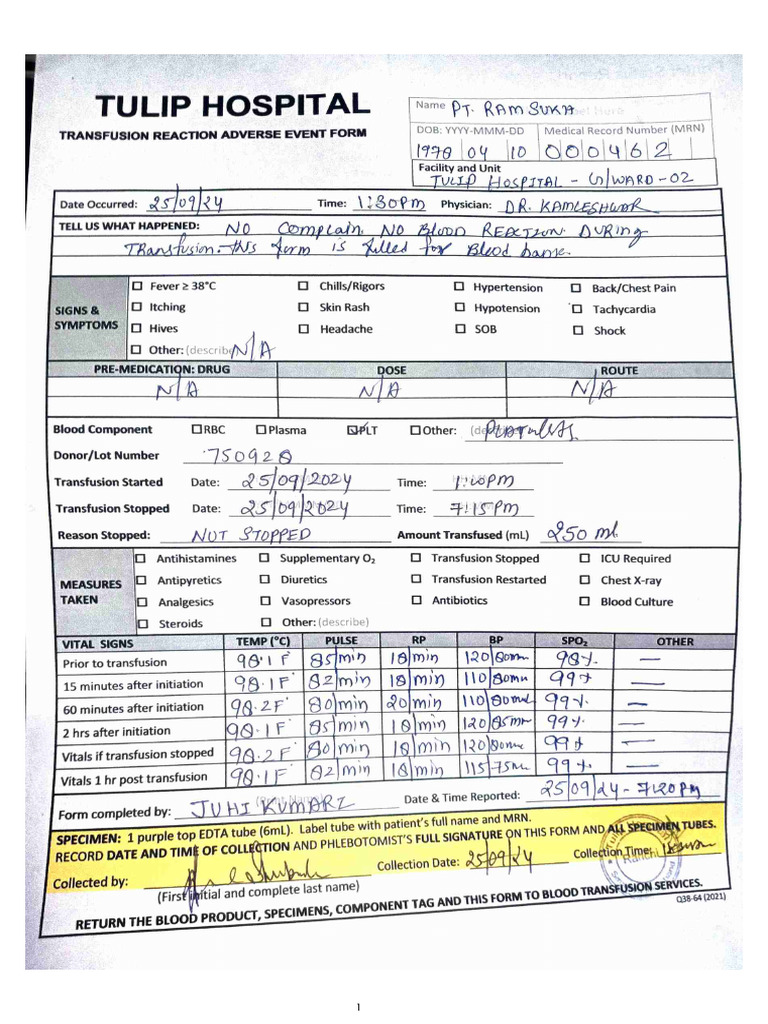 TULIP HOSPITAL
TRANSFUSION REACTION ADVERSE EVENT FORM
Name PT. RAM SUKA
DOB: YYYY-MMM-DD Medical Record Number (MRN)
1978 04 10 000462
Facility and Unit
TULIP HOSPITAL - G/WARD-02
Date Occurred: 25/09/24 Time: 1:30PM Physician: DR. KAMLESHWAR
TELL US WHAT HAPPENED: NO Complain. NO Blood REACTION DURING
Transfusion. this form is filled for Blood bank.
SIGNS & SYMPTOMS
☐ Fever ≥ 38°C ☐ Chills/Rigors ☐ Hypertension ☐ Back/Chest Pain
☐ Itching ☐ Skin Rash ☐ Hypotension ☐ Tachycardia
☐ Hives ☐ Headache ☐ SOB ☐ Shock
☐ Other: (describe) N/A
PRE-MEDICATION: DRUG DOSE ROUTE
N/A N/A N/A
Blood Component ☐RBC ☐Plasma ☑PLT ☐Other:
Donor/Lot Number 750928
Transfusion Started Date: 25/09/2024 Time:
Transfusion Stopped Date: 25/09/2024 Time: 7:15PM
Reason Stopped: NOT STOPPED Amount Transfused (mL) 250 ml
MEASURES TAKEN
☐ Antihistamines ☐ Supplementary O₂ ☐ Transfusion Stopped ☐ ICU Required
☐ Antipyretics ☐ Diuretics ☐ Transfusion Restarted ☐ Chest X-ray
☐ Analgesics ☐ Vasopressors ☐ Antibiotics ☐ Blood Culture
☐ Steroids ☐ Other: (describe)
VITAL SIGNS TEMP (°C) PULSE RP BP SPO₂ OTHER
Prior to transfusion 98.1 F 85/min 18/min 120/80mm 98% —
15 minutes after initiation 98.1F 82/min 18/min 110/80mm 99% —
60 minutes after initiation 98.2F 80/min 20/min 110/80mm 99% —
2 hrs after initiation 98.1F 85/min 18/min 120/85mm 99% —
Vitals if transfusion stopped 98.2F 80/min 18/min 120/80mm 99% —
Vitals 1 hr post transfusion 98.1F 82/min 18/min 115/75mm 99% —
Form completed by: JUHI KUMARI Date & Time Reported: 25/09/24-7:20PM
SPECIMEN: 1 purple top EDTA tube (6mL). Label tube with patient's full name and MRN.
RECORD DATE AND TIME OF COLLECTION AND PHLEBOTOMIST'S FULL SIGNATURE ON THIS FORM AND ALL SPECIMEN TUBES.
Collected by: Collection Date: 25/09/24 Collection Time:
Ranchi
(First initial and complete last name)
RETURN THE BLOOD PRODUCT, SPECIMENS, COMPONENT TAG AND THIS FORM TO BLOOD TRANSFUSION SERVICES.
Q38-64 (2021)
1